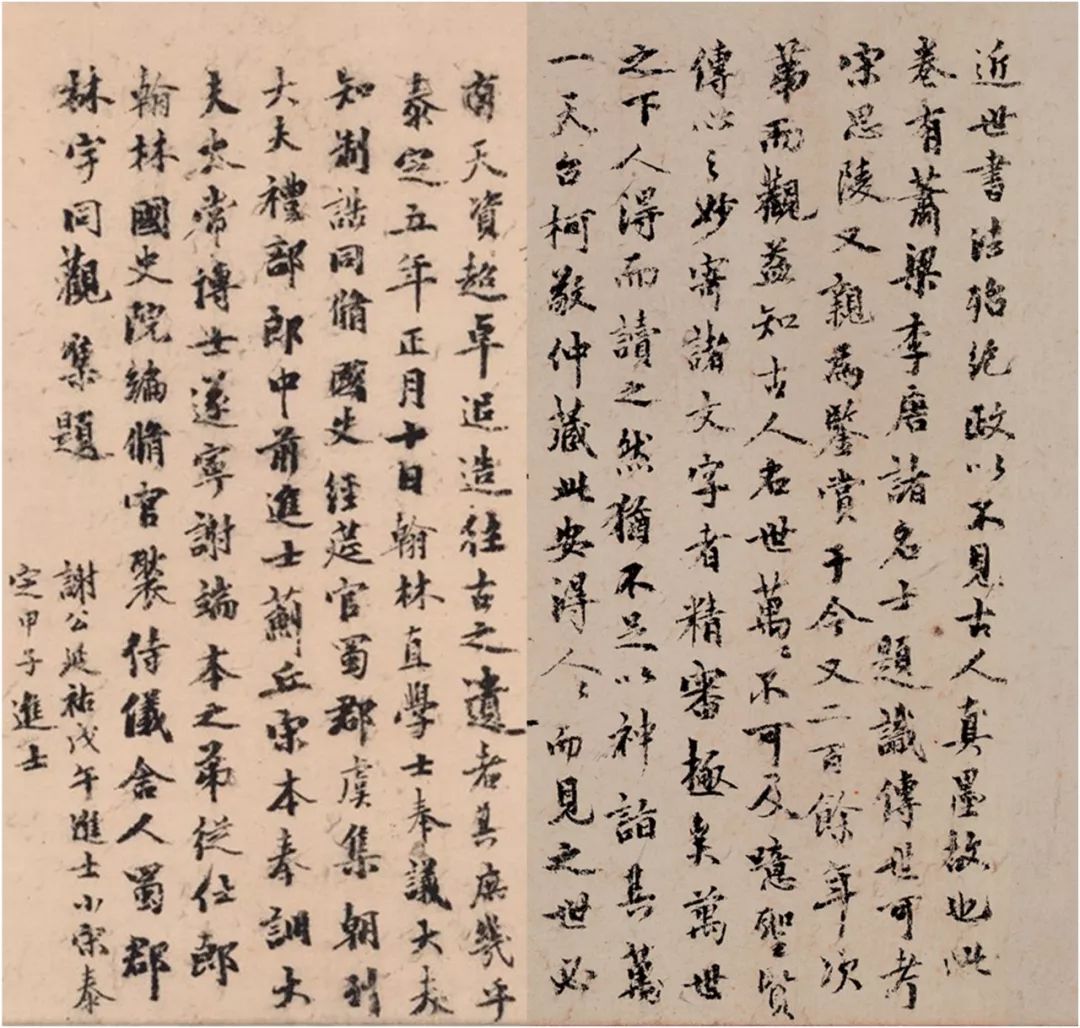 近世書法殆絶政以不見古人真墨故也此
卷有蕭梁李唐諸名士題識傳世可考
宋思陵又親為鑒賞于今又二百餘年次
第而觀益知古人名世萬〻不可及噫聖賢
傳心之妙寄諸文字者精審極矣萬世
之下人得而讀之然猶不足以神詣其萬
一天台柯敬仲藏此安得人〻而見之世必
有天資超卓追造往古之遺者其庶幾乎
泰定五年正月十日翰林直學士奉議大夫
知制誥同脩國史經莚官蜀郡虞集朝列
大夫禮部郎中前進士薊丘宋本奉訓大
夫太常博士遂寧謝端本之弟從仕郎
翰林國史院編脩官褧侍儀舍人蜀郡
林宇同觀集題
謝公延祐戊午進士小宋泰
定甲子進士